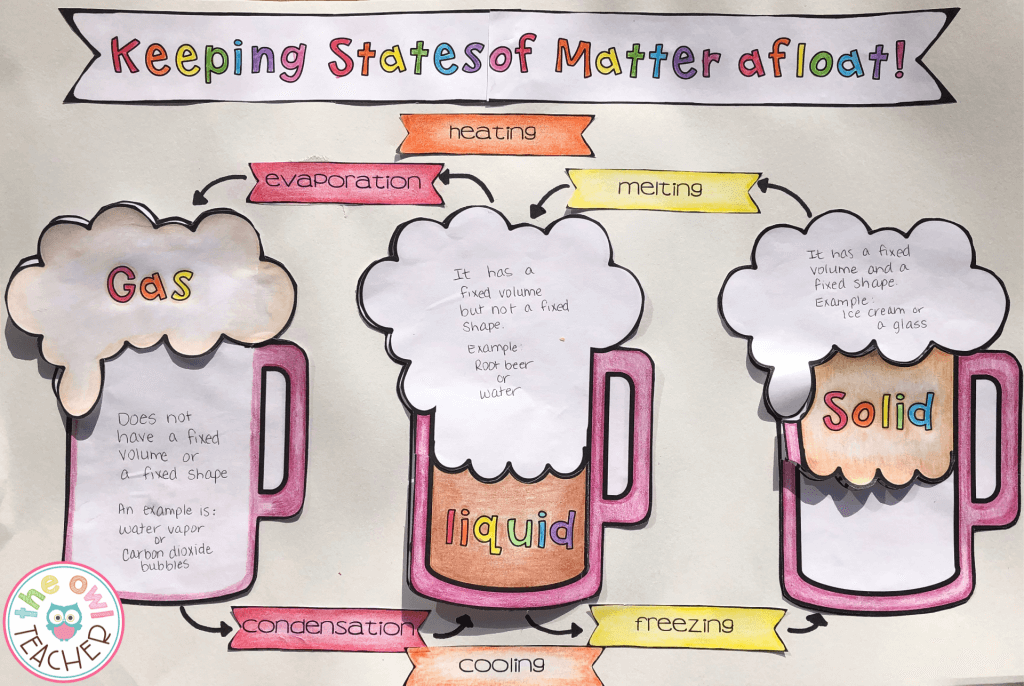 Keeping States of Matter afloat!
heating
evaporation
melting
Gas
Does not
have a fixed
volume or
a fixed shape
An example is:
water vapor
or
Carbon dioxide
bubbles
It has a
fixed volume
but not a fixed
shape.
Example:
Root beer
or
water
liquid
It has a fixed
volume and a
fixed shape.
Example:
Ice cream or
a glass
Solid
condensation
freezing
cooling
the owl
TEACHER